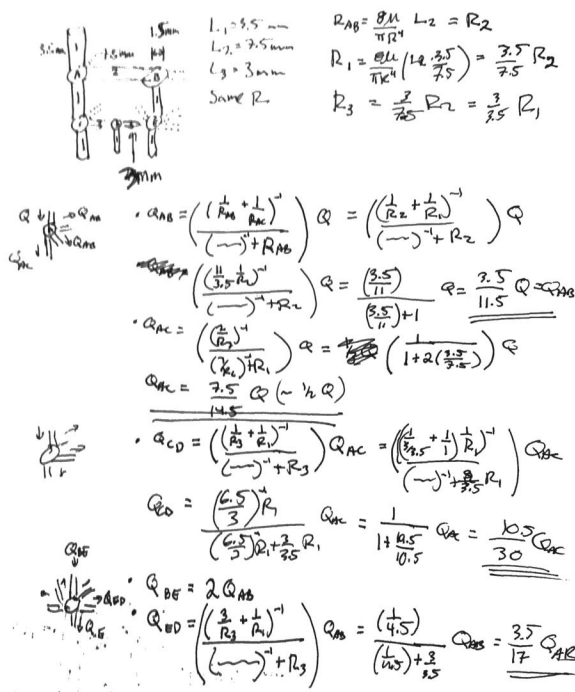 1.5mm
3.5mm
7.5mm
L₁=3.5mm
L₂=7.5mm
L₃=3mm
Same R
A
2
B
1
3
3mm
R_AB = 8μ/πR⁴ L₂ = R₂
R₁ = 8μ/πR⁴ (L₂ 3.5/7.5) = 3.5/7.5 R₂
R₃ = 3/7.5 R₂ = 3/3.5 R₁
Q Q_AB
Q_AB
Q_AC
• Q_AB = ( (1/R_AB + 1/R_AC)⁻¹ / (~~)⁻¹ + R_AB ) Q = ( (1/R₂ + 1/R₁)⁻¹ / (~~)⁻¹ + R₂ ) Q
( (11/3.5 1/R₂)⁻¹ / (~~)⁻¹ + R₂ ) Q = (3.5/11) / (3.5/11) + 1 Q = 3.5/11.5 Q = Q_AB
• Q_AC = ( (2/R₂)⁻¹ / (2/R₂)⁻¹ + R₁ ) Q = ( 1 / 1 + 2(3.5/7.5) ) Q
Q_AC = 7.5/14.5 Q (~ ½ Q)
• Q_CD = ( (1/R₃ + 1/R₁)⁻¹ / (~~)⁻¹ + R₃ ) Q_AC = ( ((1/3/3.5 + 1/1) 1/R₁)⁻¹ / (~~)⁻¹ + 3/3.5 R₁ ) Q_AC
Q_CD = (6.5/3)⁻¹ R₁ / (6.5/3)⁻¹ R₁ + 3/3.5 R₁ Q_AC = 1 / 1 + 19.5/10.5 Q_AC = 10.5/30 Q_AC
Q_BE
Q_ED
Q_E
• Q_BE = 2 Q_AB
• Q_ED = ( (3/R₃ + 1/R₁)⁻¹ / (~~)⁻¹ + R₃ ) Q_AB = (1/4.5) / (1/4.5) + 3/3.5 Q_AB = 3.5/17 Q_AB